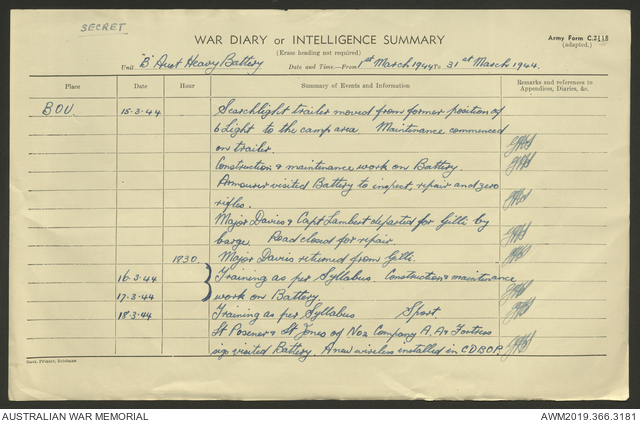 SECRET
WAR DIARY or INTELLIGENCE SUMMARY
(Erase heading not required)
Army Form C.2118
(adapted.)
Unit "B" Aust Heavy Battery
Date and Time.—From 1st March 1944 To 31st March 1944.
Place Date Hour Summary of Events and Information Remarks and references to Appendices, Diaries, &c.
BOU. 15-3-44 Searchlight trailer moved from former position of
6 Light to the camp area. Maintenance commenced
on trailer.
Construction & maintenance work on Battery.
Armourer visited Battery to inspect, repair and zero
rifles.
Major Davies & Capt Lambert departed for Gilli by
barge. Road closed for repair.
1830. Major Davis returned from Gilli.
16-3-44 Training as per Syllabus. Construction & maintenance
17-3-44 work on Battery.
18-3-44 Training as per Syllabus Sport.
Lt Posener & Lt Jones of No 2 Company A.A. & Fortress
sigs visited Battery. A new wireless installed in CDBOP.
Govt. Printer, Brisbane
AUSTRALIAN WAR MEMORIAL
AWM2019.366.3181